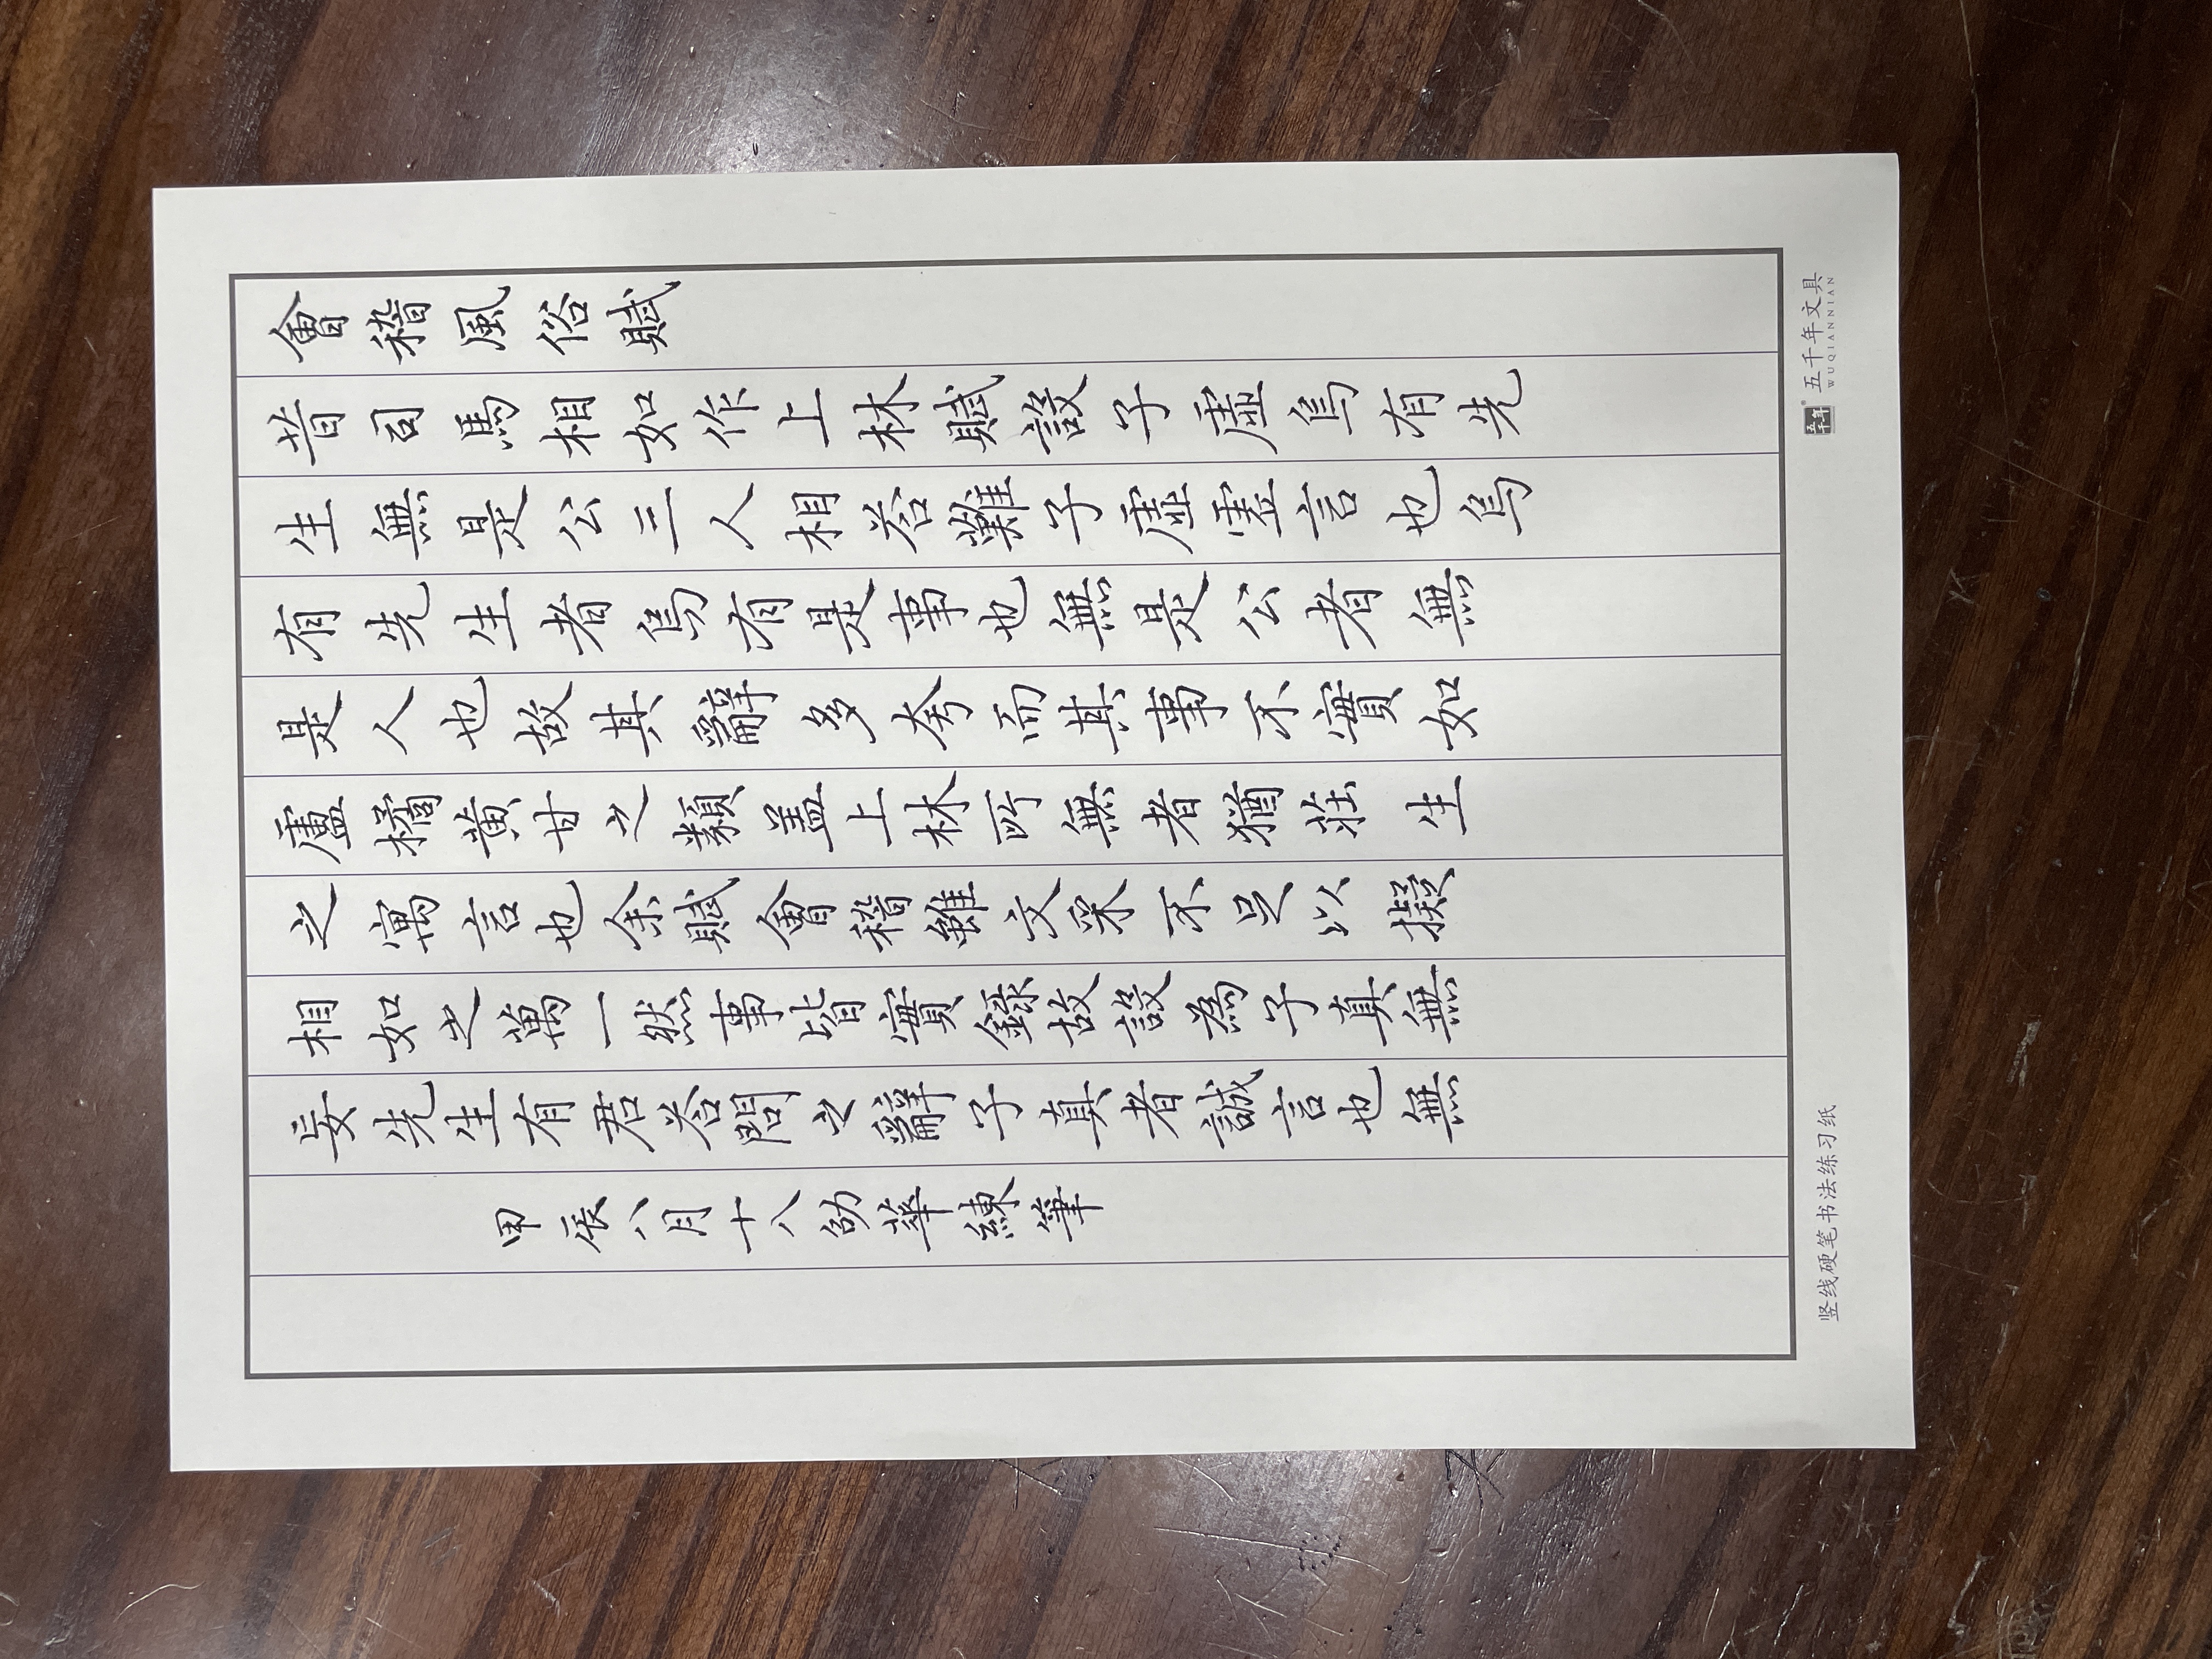 會稽風俗賦
昔司馬相如作上林賦設子虛烏有先
生無是公三人相荅難子虛虛言也烏
有先生者烏有是事也無是公者無
是人也故其辭多夸而其事不實如
盧橘黃甘之類盖上林所無者猶莊生
之寓言也余賦會稽雖文采不足以擬
相如之萬一然事皆實錄故設為子真無
妄先生有君荅問之辭子真者誠言也無
甲辰八月十八劭華練筆
竖线硬笔书法练习纸
五千年 五千年文具
WUQIANNIAN